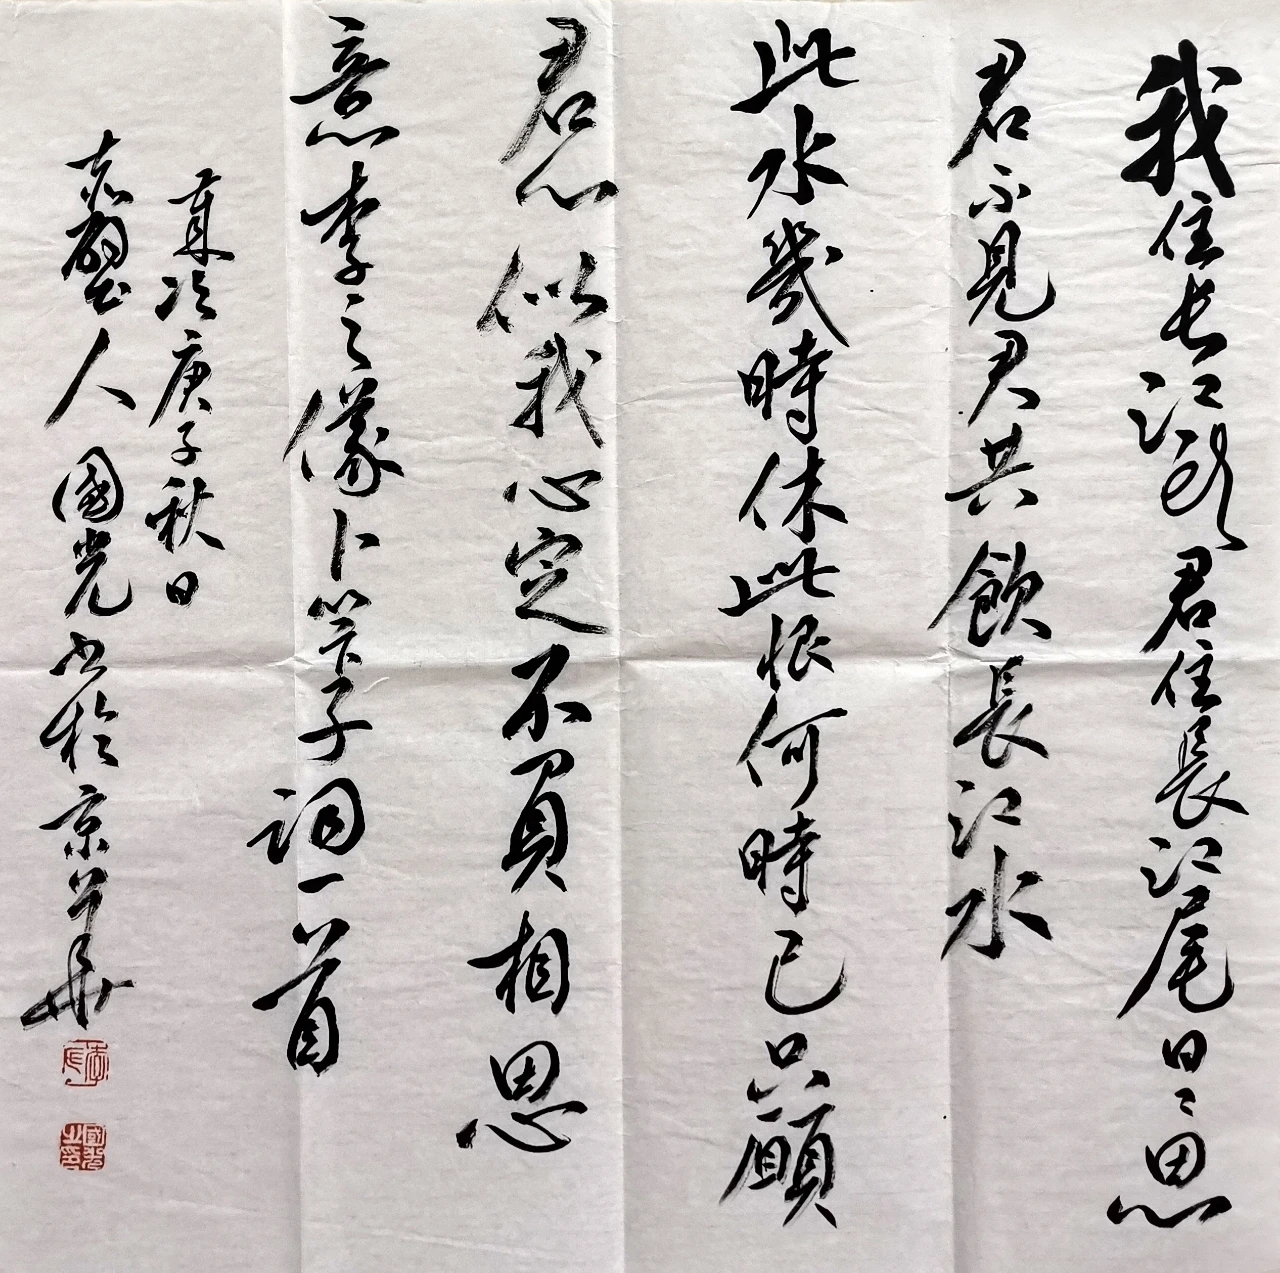 我住長江頭君住長江尾日々思
君不見君共飲長江水
此水幾時休此恨何時已只願
君心似我心定不負相思
意李之儀卜算子詞一首
歲次庚子秋日
人國光书於京華